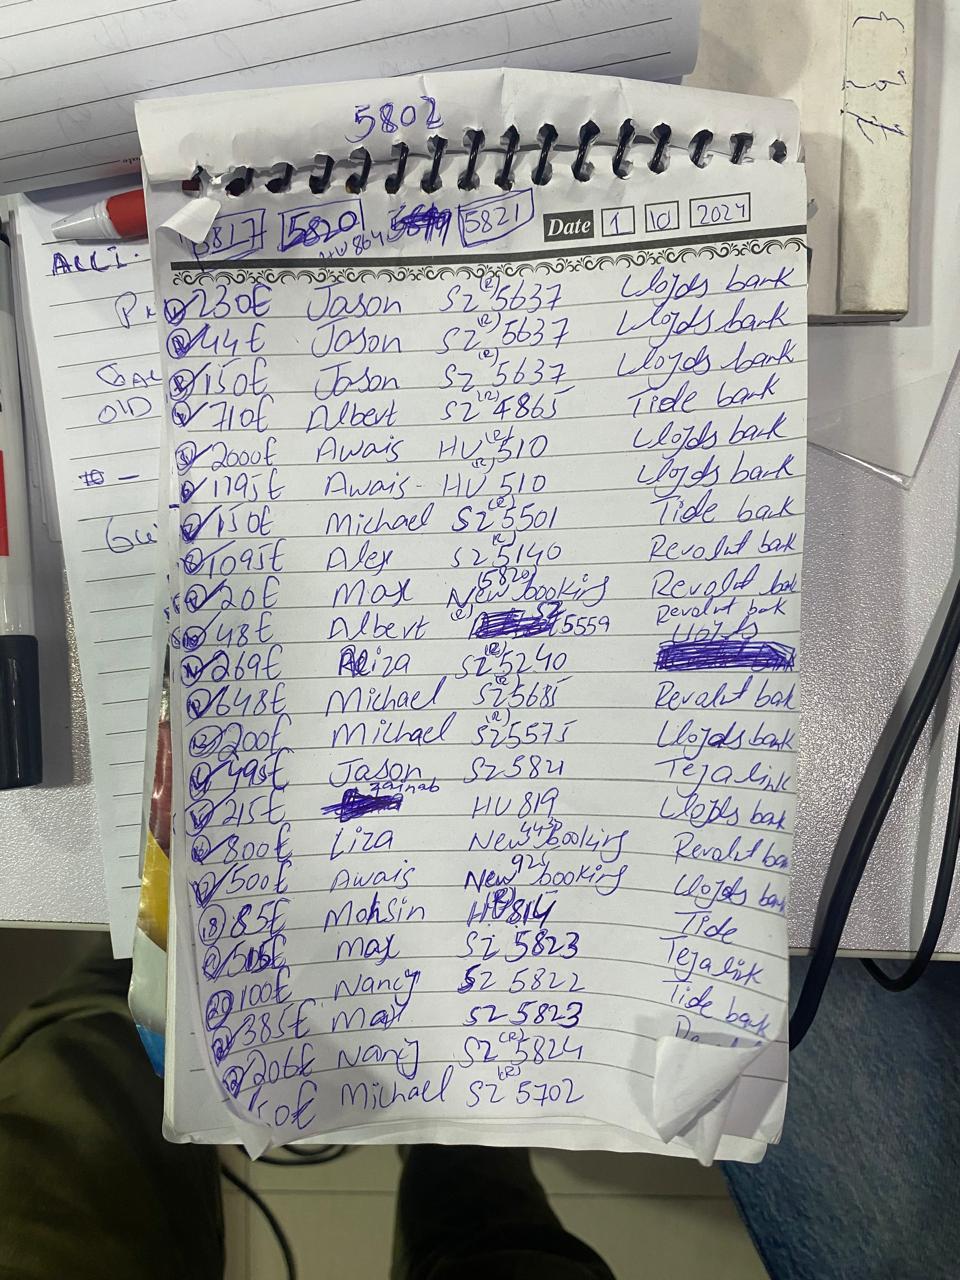 5802
5817 5820 5819 5821 Date 1 10 2024
HU 864
1 230£ Jason SZ (R) 5637 Lloyds bank
2 44£ Jason SZ (R) 5637 Lloyds bank
3 150£ Jason SZ (R) 5637 Lloyds bank
4 710£ Albert SZ (R) 4865 Tide bank
5 2000£ Awais HU (R) 510 Lloyds bank
6 1195£ Awais - HU (R) 510 Lloyds bank
7 150£ Michael SZ (R) 5501 Tide bank
8 1095£ Alex SZ (R) 5140 Revolut bank
9 20£ Max New (5820) booking Revolut bank
10 48£ Albert (R) SZ 5559 Revolut bank
Lloyds
11 269£ Aliza SZ (R) 5240
12 648£ Michael SZ (R) 5685 Revolut bank
13 200£ Michael SZ (R) 5575 Lloyds bank
14 495£ Jason SZ 5821 Tejalink
15 215£ Zainab HU 819 Lloyds bank
16 800£ Liza New booking Revolut ban
17 500£ Awais New 925 booking Lloyds bank
18 85£ Mohsin HU (R) 814 Tide
19 Max SZ 5823 Tejalink
20 100£ Nancy SZ 5822 Tide bank
21 385£ Max SZ 5823
22 206£ Nancy SZ (R) 5824
50£ Michael SZ (R) 5702
ALLI.
OLD